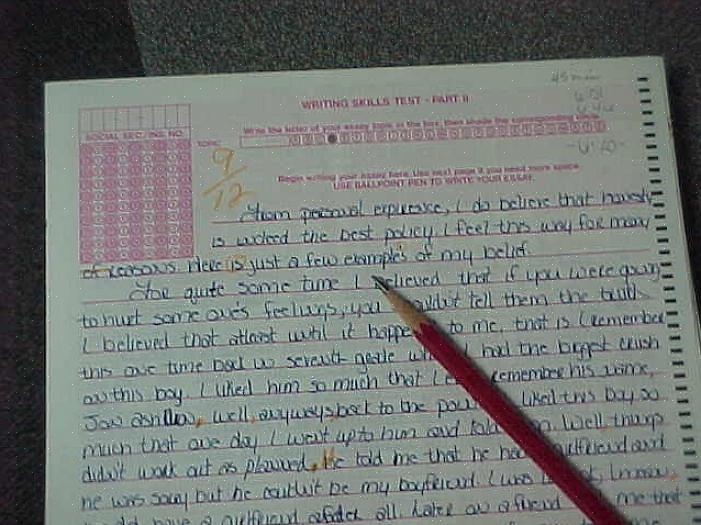 45 min
WRITING SKILLS TEST - PART II
SOCIAL SEC./INS. NO.
Write the letter of your essay topic in the box, then shade the corresponding circle.
TOPIC
9/12
Begin writing your essay here. Use next page if you need more space.
USE BALLPOINT PEN TO WRITE YOUR ESSAY.
From personal experience, I do believe that honesty
is indeed the best policy. I feel this way for many
of reasons. Here is just a few examples of my belief.
For quite some time I believed that if you were going
to hurt some one's feelings, you tell them the truth.
I believed that atleast until it to me, that is I remember
this one time back in seventh grade I had the biggest crush
on this boy. I liked him so much that I remember his name,
Jon well, anyways back to the liked this boy so
much that one day I went up to him and Well, things
didn't work out as planned, He told me that he girlfriend and
he was sorry but he couldn't be my boyfriend. I was
have a girlfriend all. Later on a friend me that